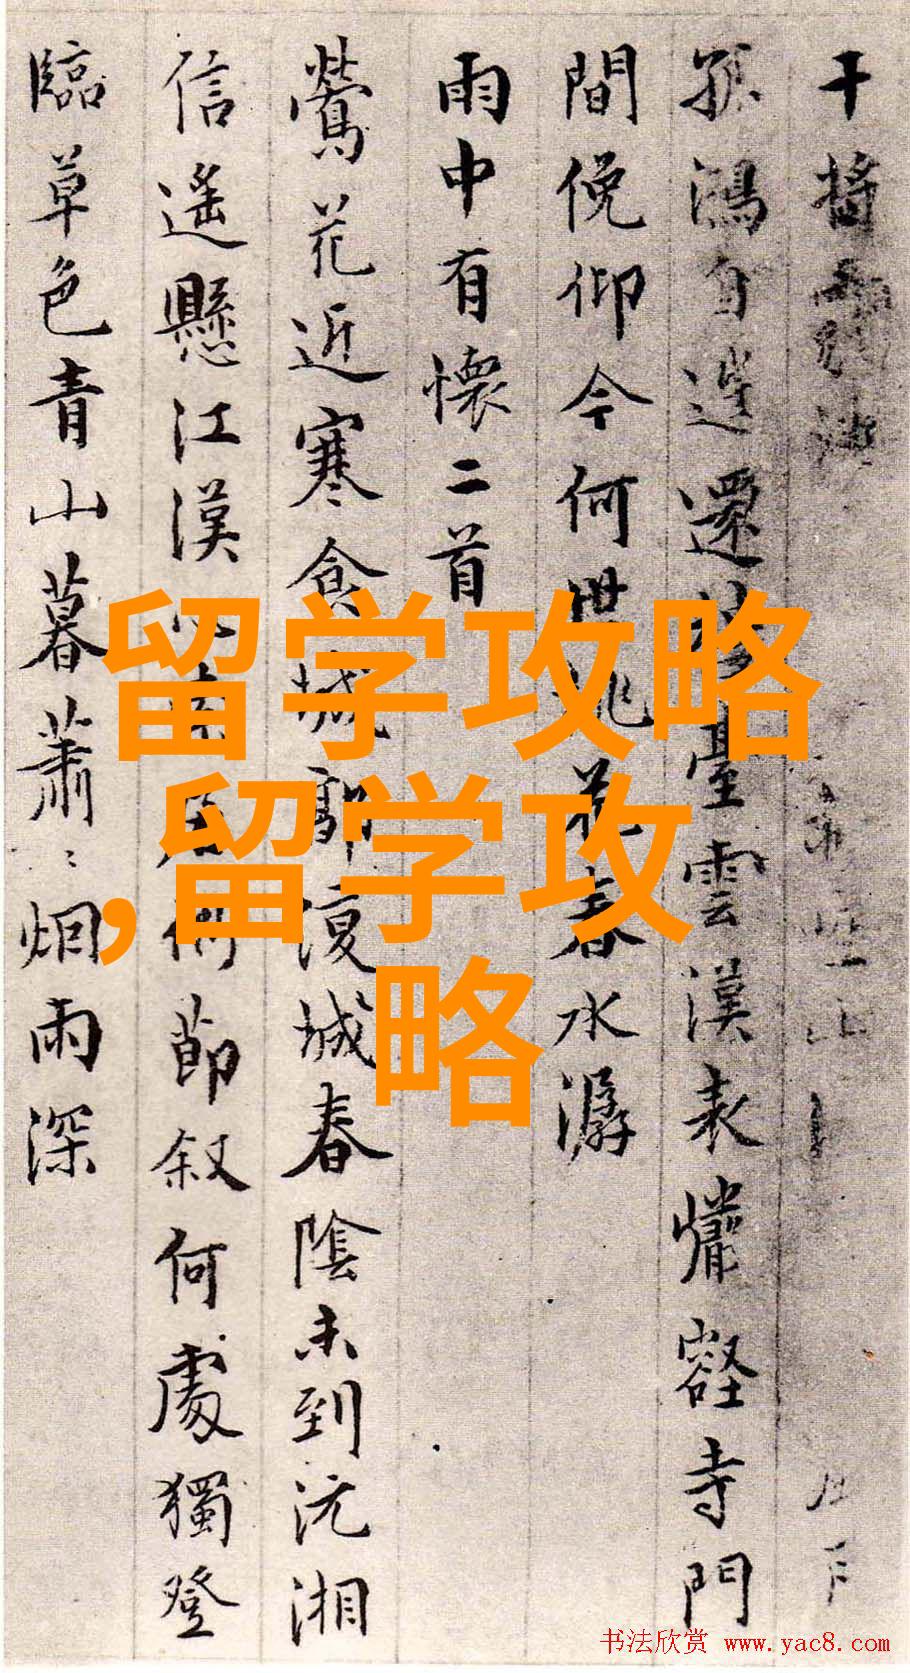 干將
孤鴻自遣還
臺雲漢表懽
壑寺門
間俛仰今何世桃花春水潺
雨中有懷二首
鶯花近寒食城郭復城春陰未到沅湘
信遙懸江漢
節叙何處獨登
臨草色青山暮蕭〻烟雨深
留学攻略
,留学攻
略
书法欣赏 www.yac8.com